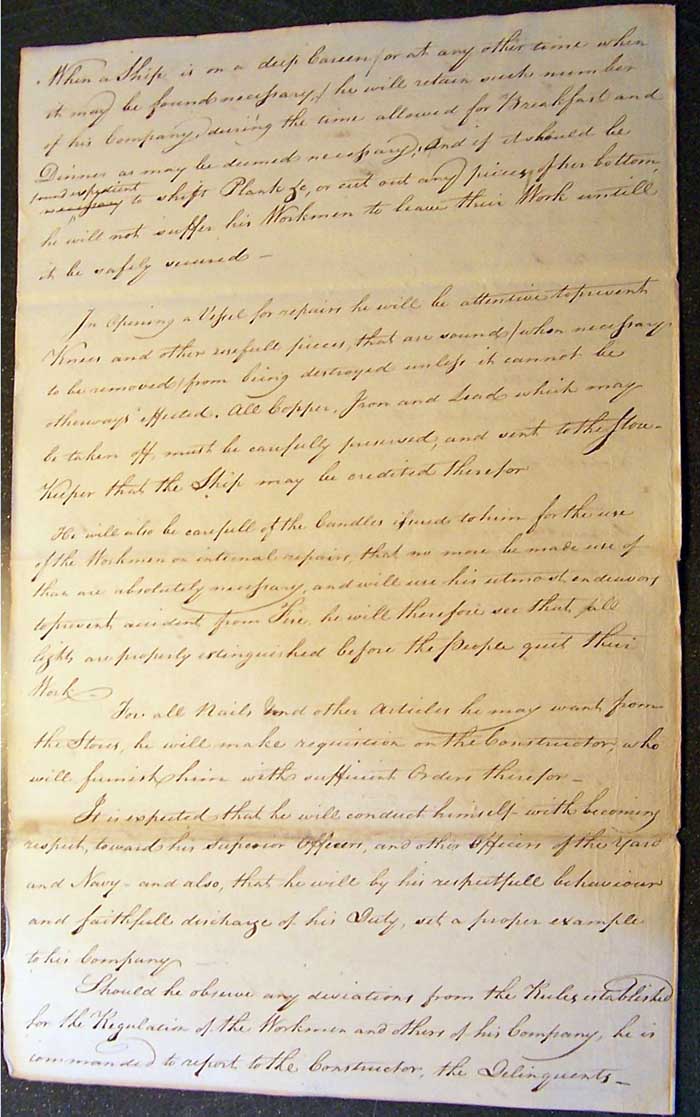 When a Ship is on a deep Careen / or at any other time when
it may be found necessary / he will retain such number
of his Company, during the time allowed for Breakfast and
Dinner as may be deemed necessary, And if it should be
found expedient
necessary to shift Plank &c, or cut out any pieces of her bottom,
he will not suffer his Workmen to leave their Work untill
it be safely secured —
In opening a Vessel for repairs he will be attentive to prevent
Knees and other usefull pieces, that are sound / when necessary
to be removed / from being destroyed unless it cannot be
otherways effected. All Copper, Iron and Lead which may
be taken off, must be carefully preserved, and sent to the Store-
Keeper that the Ship may be credited therefor
He will also be carefull of the Candles issued to him for the use
of the Workmen on internal repairs, that no more be made use of
than are absolutely necessary, and will use his utmost endeavors
to prevent accident from Fire, he will therefore see that all
lights are properly extinguished before the People quit their
Work —
For all Nails and other Articles he may want from
the Stores, he will make requisition on the Constructor, who
will furnish him with sufficient Orders therefor —
It is expected that he will conduct himself with becoming
respect, toward his superior Officers, and other Officers of the Yard
and Navy — and also, that he will by his respectfull behaviour
and faithfull discharge of his Duty, set a proper example
to his Company —
Should he observe any deviations from the Rules established
for the Regulation of the Workmen and others of his Company, he is
commanded to report to the Constructor, the Delinquents —